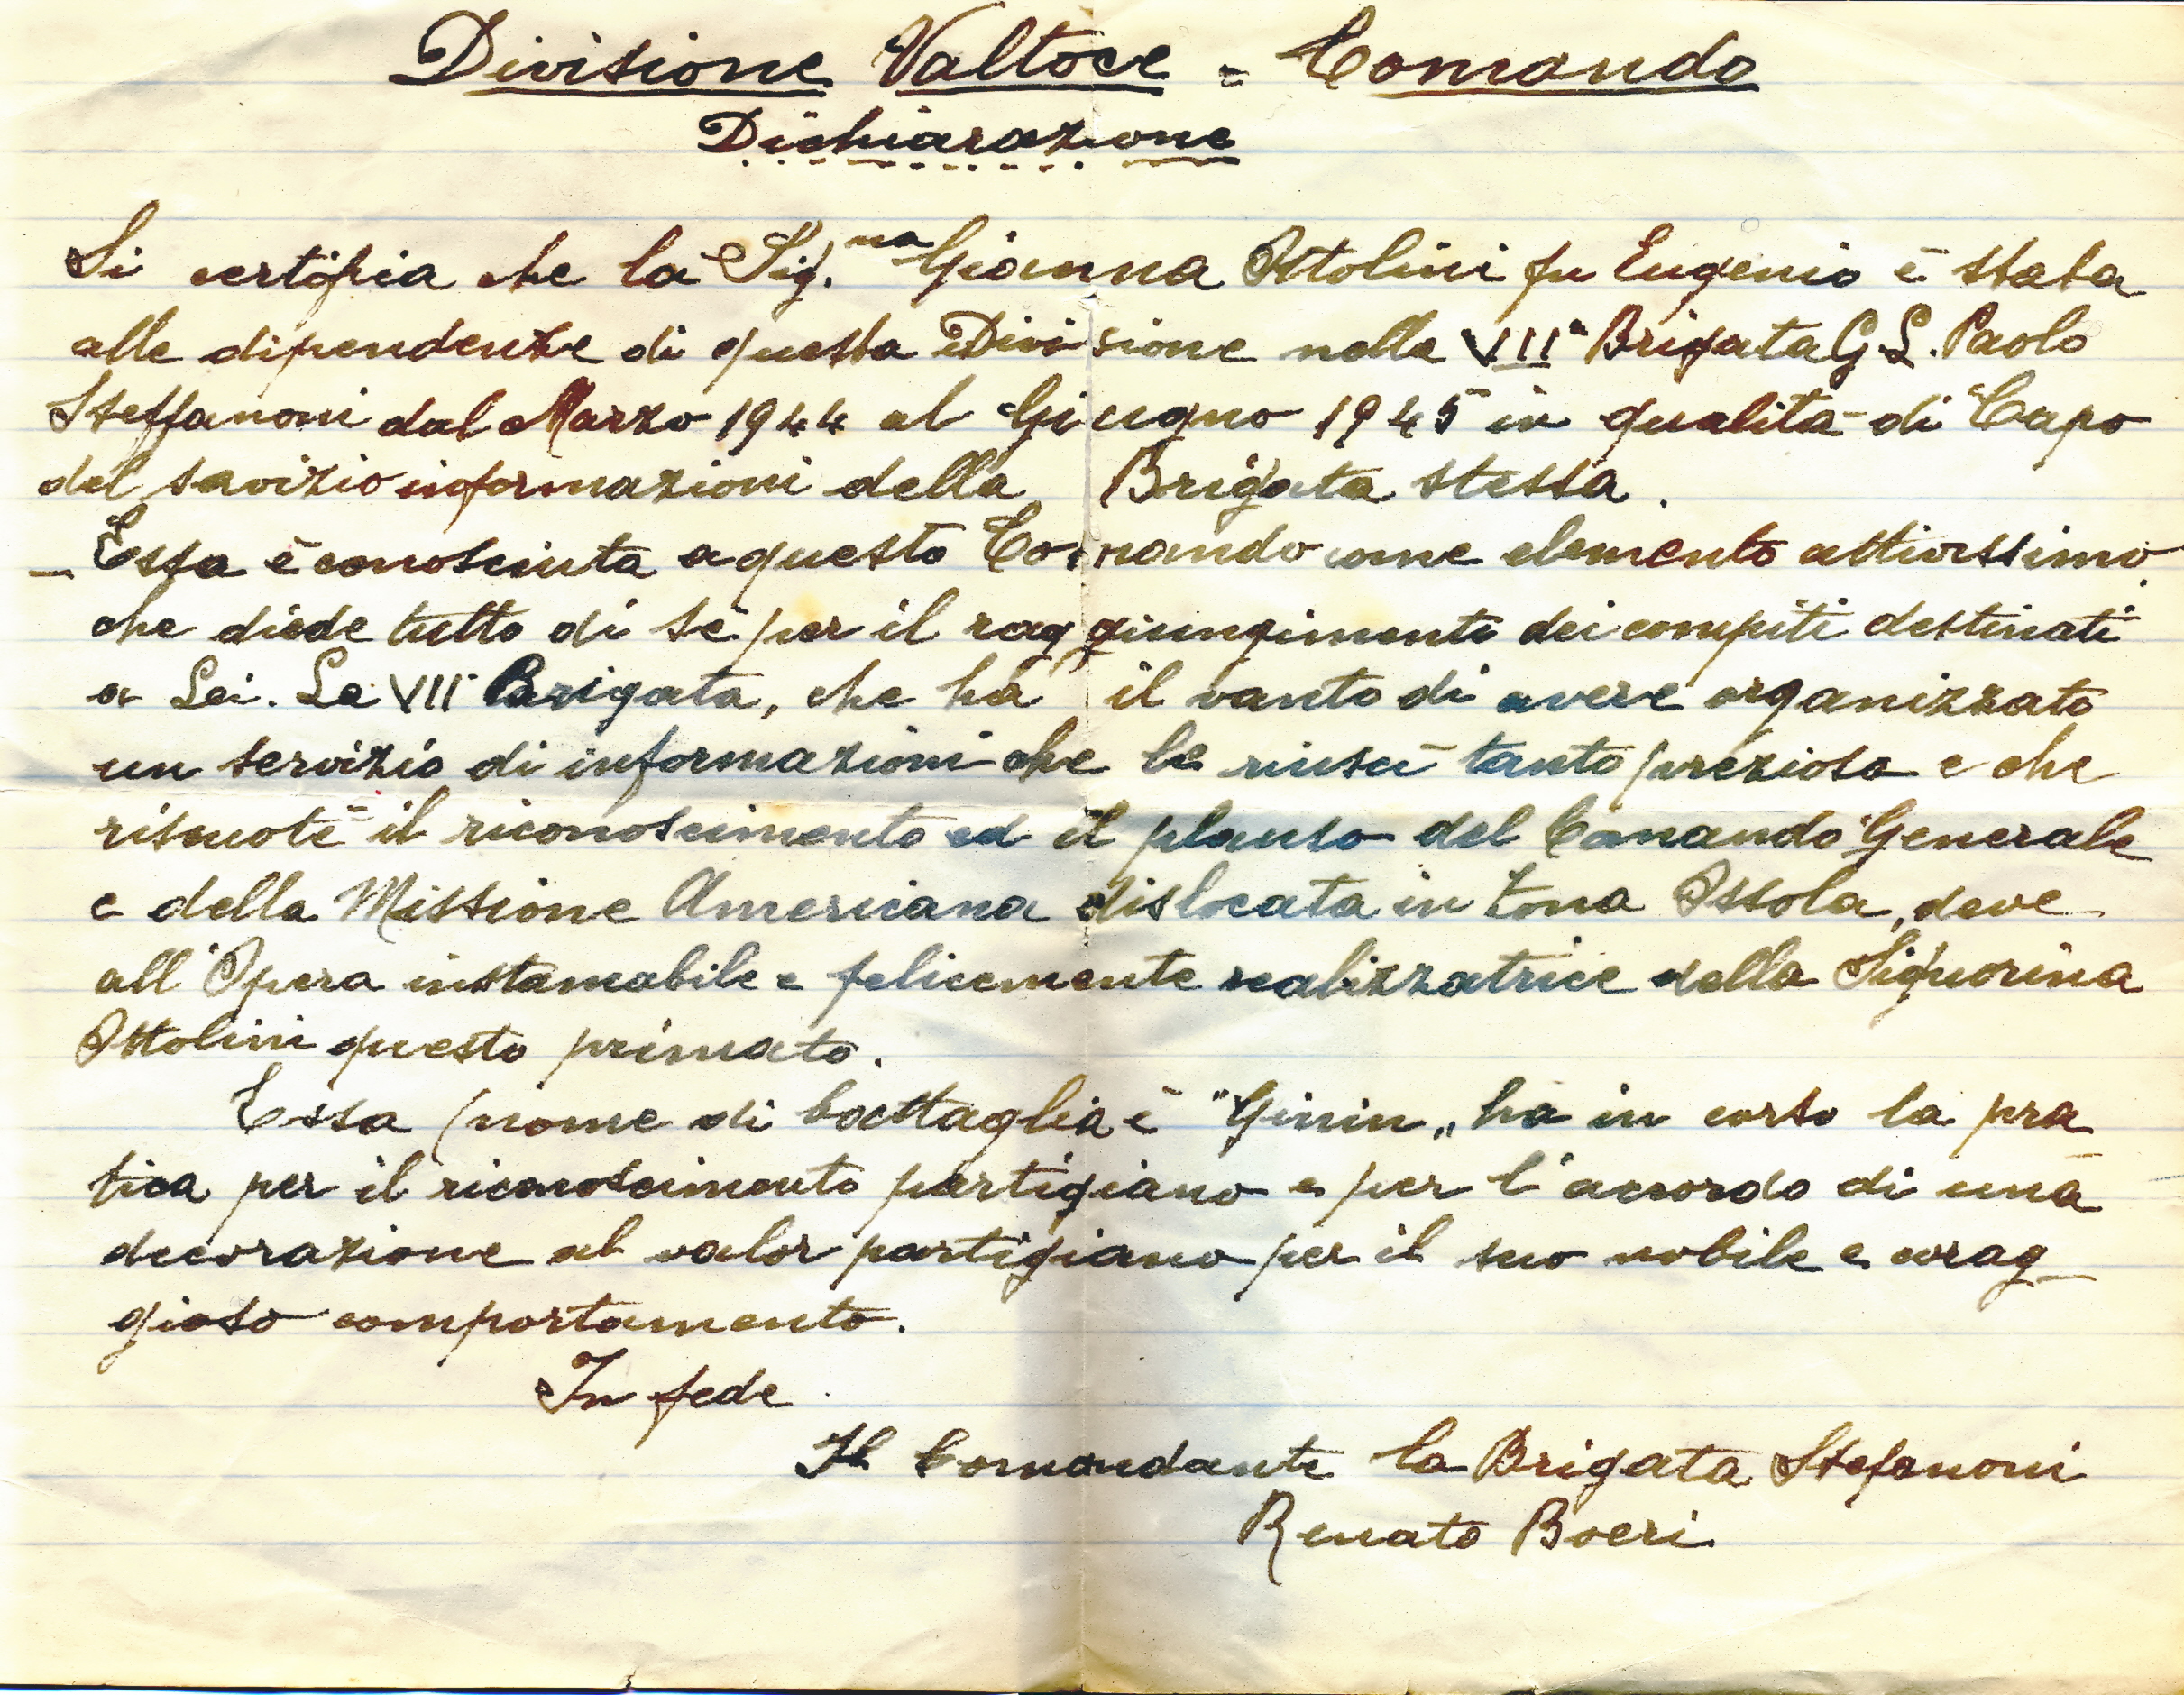 Divisione Valtoce = Comando
Dichiarazione
Si certifica che la Sig.na Gianna Ottolini fu Eugenio è stata
alle dipendenze di questa Divisione nella VIIª Brigata G.L. Paolo
Steffanoni dal Marzo 1944 al Giugno 1945 in qualità di Capo
del servizio informazioni della Brigata stessa.
_ Essa è conosciuta a questo Comando come elemento attivissimo
che diede tutto di sè per il raggiungimento dei compiti destinati
a Lei. La VII Brigata, che ha il vanto di avere organizzato
un servizio di informazioni che le riuscì tanto prezioso e che
riscuotè il riconoscimento ed il plauso del Comando Generale
e della Missione Americana dislocata in zona Ossola, deve
all'Opera instancabile e felicemente realizzatrice della Signorina
Ottolini questo primato.
Essa (nome di battaglia è "Ginin„ ha in corso la pra
tica per il riconoscimento partigiano e per l'accordo di una
decorazione al valor partigiano per il suo nobile e corag_
gioso comportamento.
In fede
Il Comandante la Brigata Stefanoni
Renato Boeri